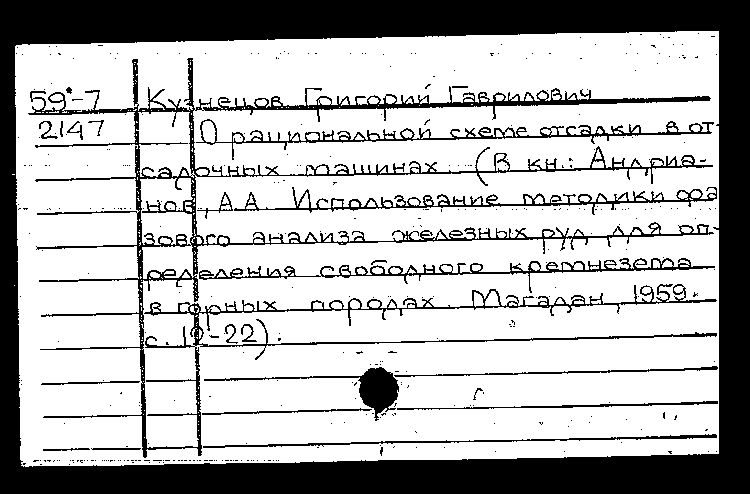 59-7 Кузнецов Григорий Гаврилович
2147 О рациональной схеме отсадки в от-
садочных машинах. (В кн.: Андриа-
нов, А.А. Использование методики фа
зового анализа железных руд для оп-
ределения свободного кремнезема
в горных породах. Магадан, 1959.
с. 19-22).